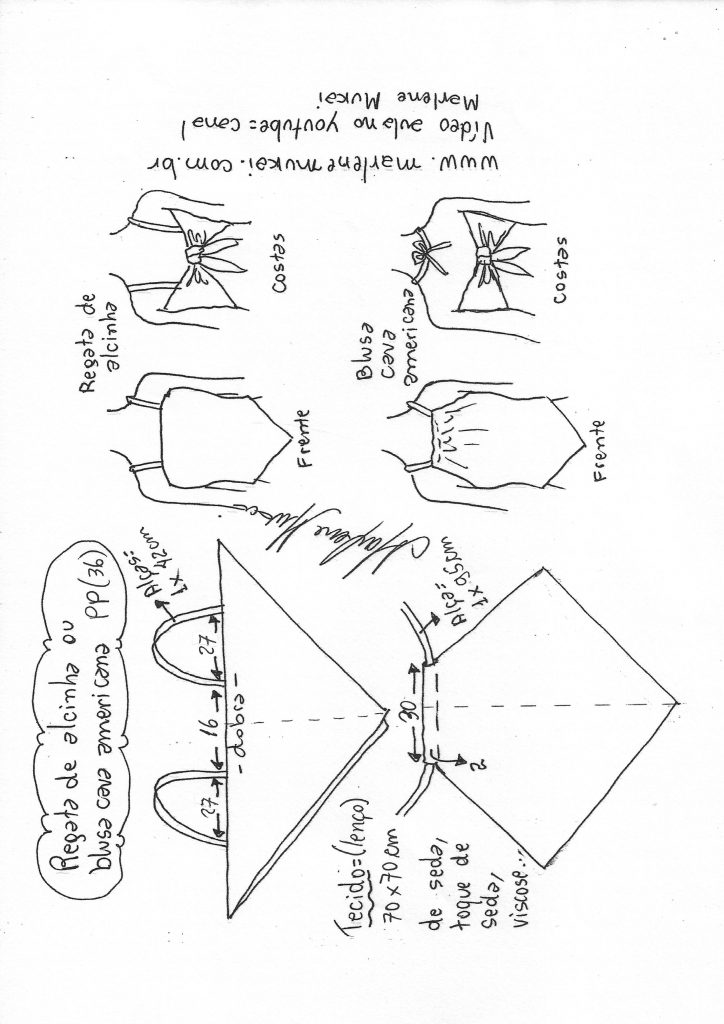 Regata de alcinha ou
blusa cava americana PP(36)
Alças=
1x42cm
27
16
27
-dobra-
Tecido=(lenço)
70x70cm
de seda,
toque de
seda,
viscose...
30
3
Alça=
1x95cm
Marlene Mukai
Regata de
alcinha
Frente
Costas
Blusa
cava
americana
Frente
Costas
www.marlenemukai.com.br
Vídeo aula no youtube=canal
Marlene Mukai